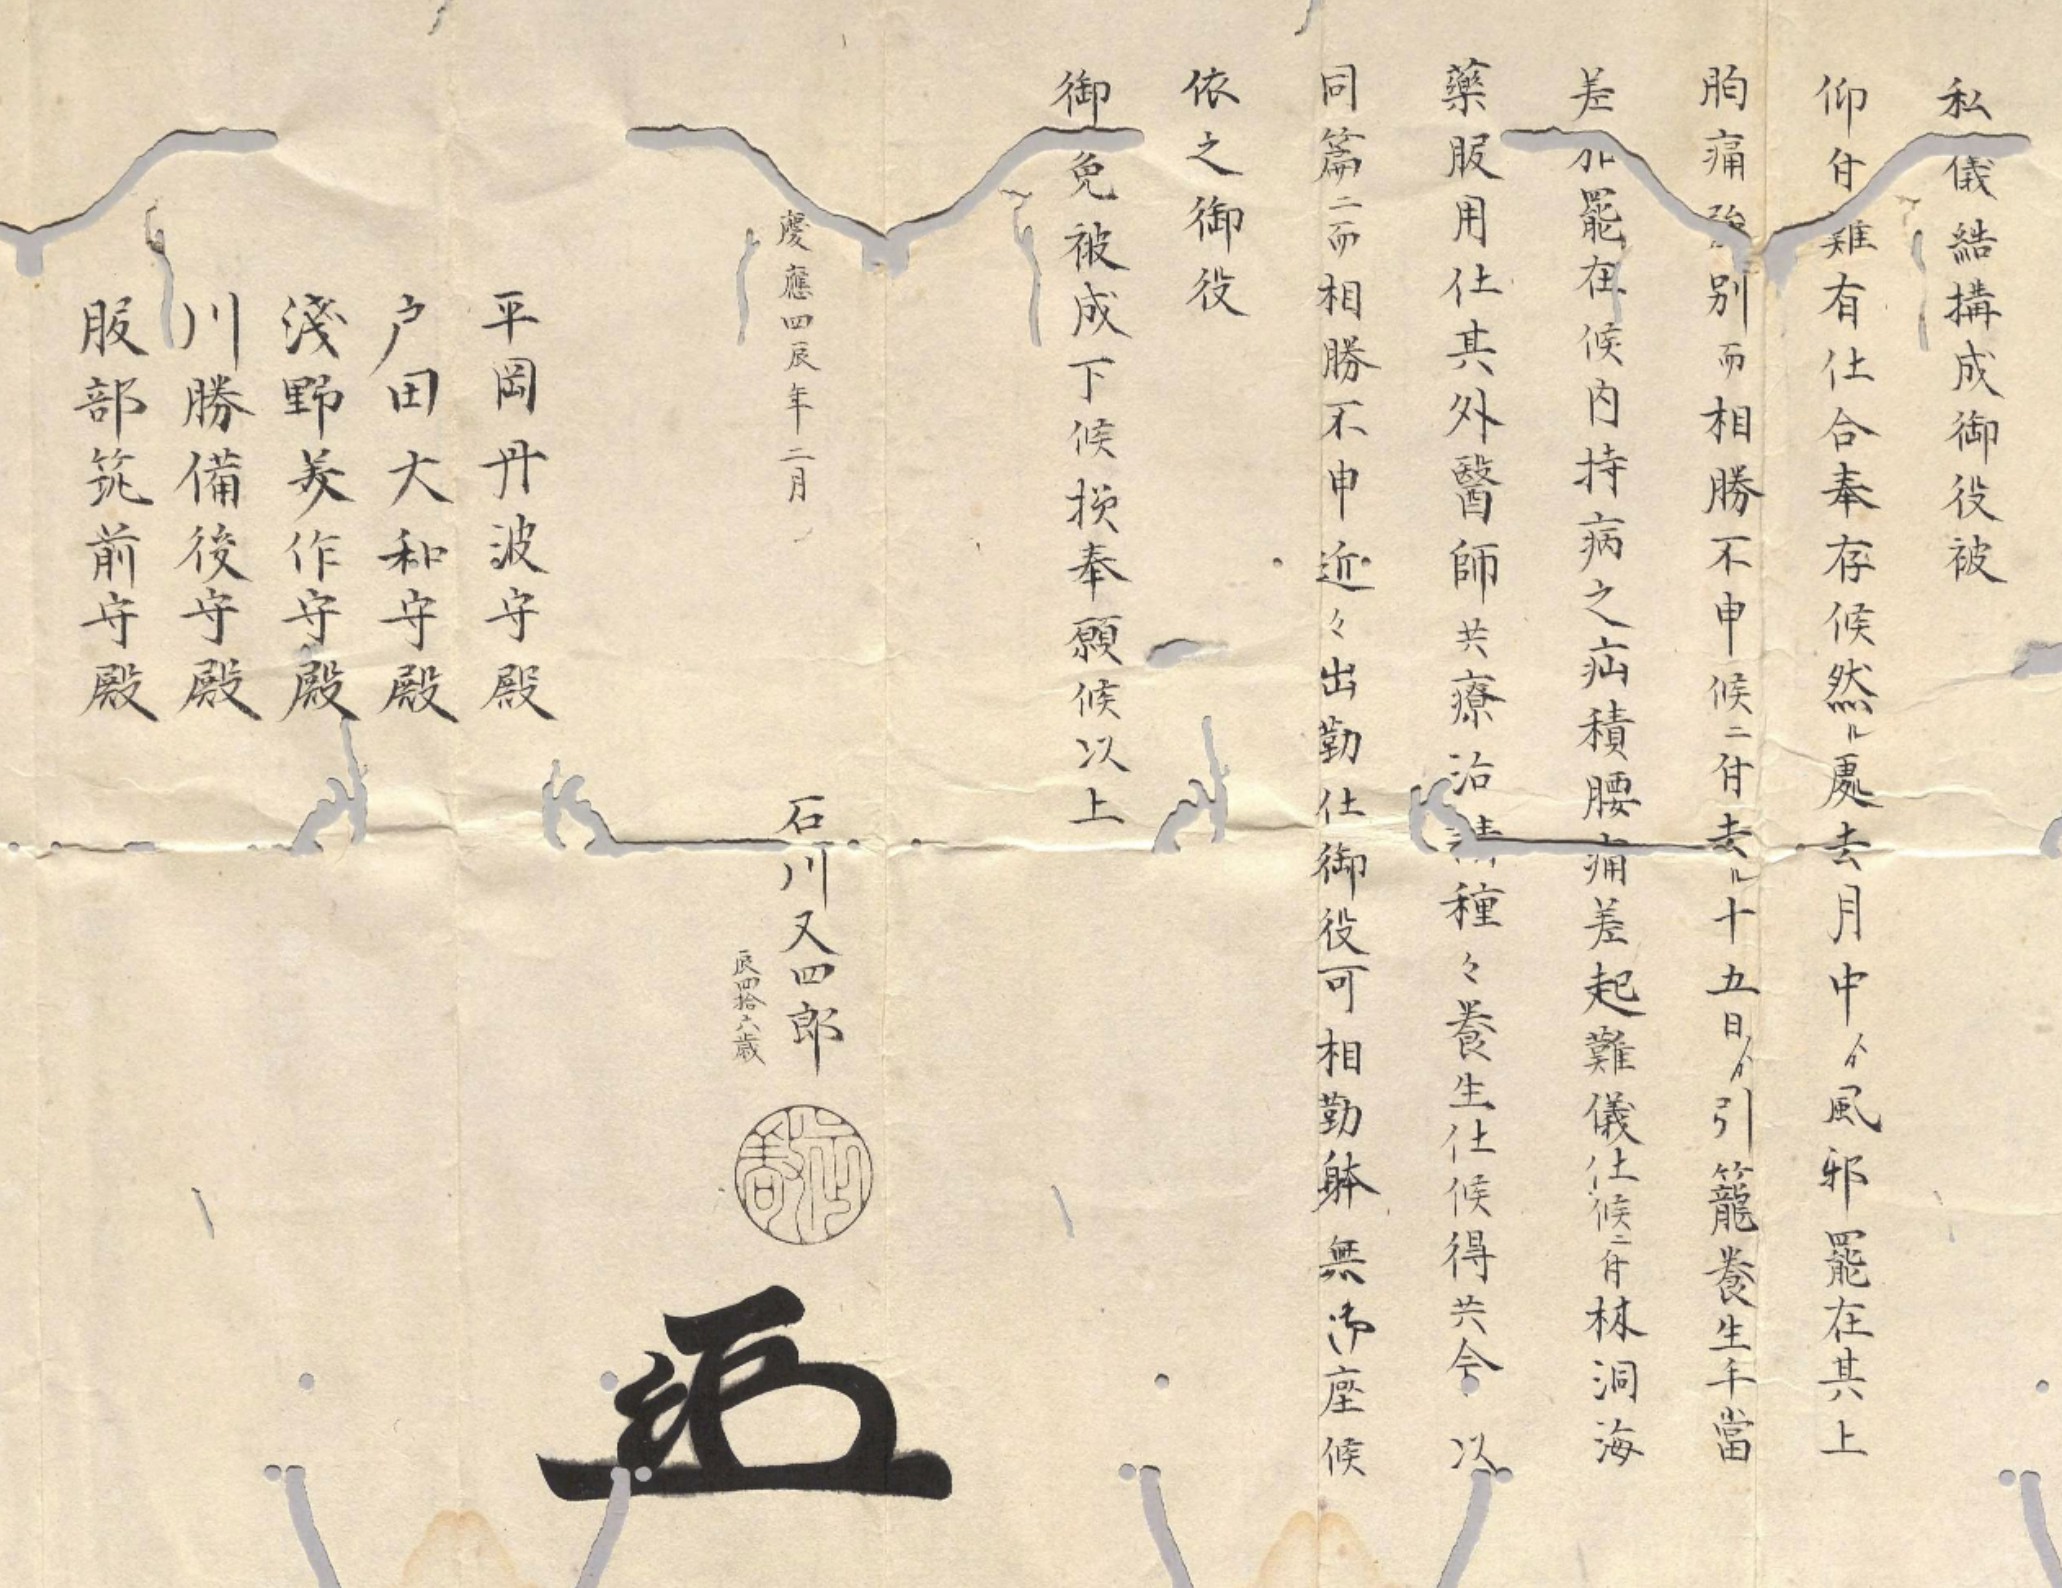 私儀結構成御役被
仰付難有仕合奉存候然ル處去月中ゟ風邪罷在其上
胸痛強別而相勝不申候ニ付去ル十五日ゟ引籠養生手當
差加罷在候内持病之疝積腰痛差起難儀仕候ニ付林洞海
藥服用仕其外醫師共療治請種々養生仕候得共今以
同篇ニ而相勝不申近々出勤仕御役可相勤躰無御座候
依之御役
御免被成下候様奉願候以上
慶應四辰年二月
石川又四郎
辰四拾六歳
平岡丹波守殿
戸田大和守殿
淺野美作守殿
川勝備後守殿
服部筑前守殿